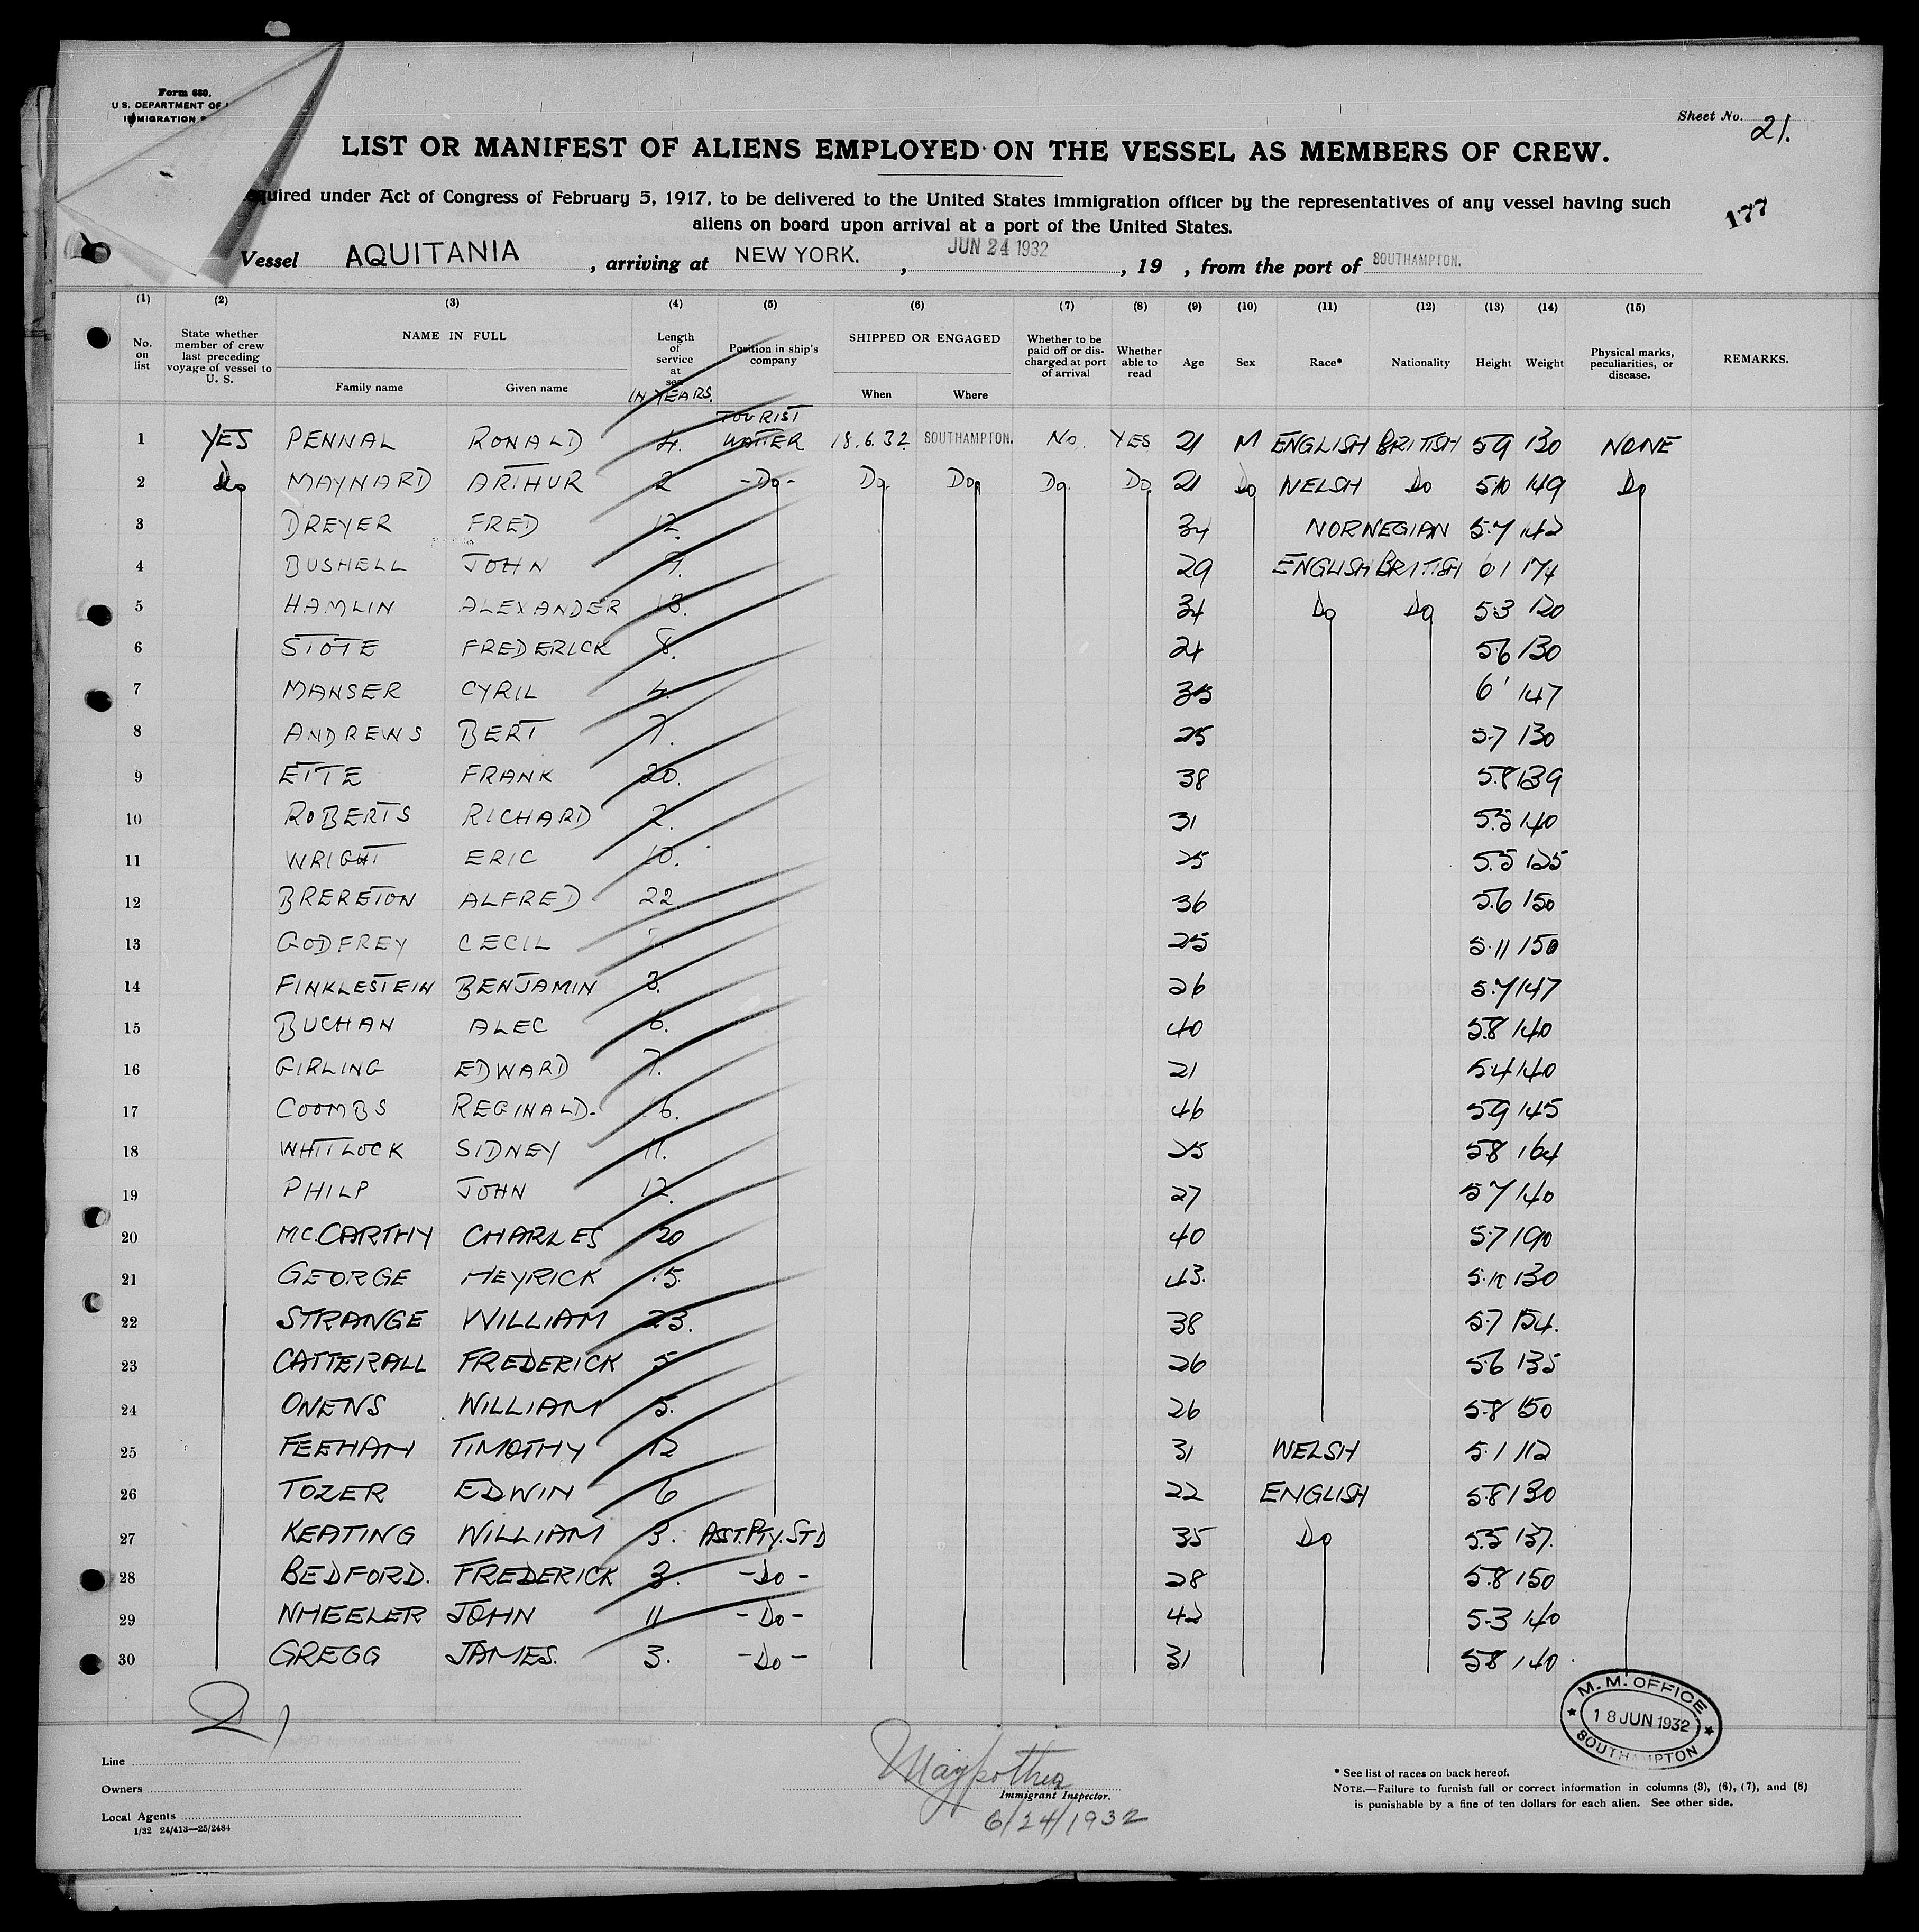 Form 680.
U. S. DEPARTMENT OF
IMMIGRATION
Sheet No. 21.
LIST OR MANIFEST OF ALIENS EMPLOYED ON THE VESSEL AS MEMBERS OF CREW.
quired under Act of Congress of February 5, 1917, to be delivered to the United States immigration officer by the representatives of any vessel having such
aliens on board upon arrival at a port of the United States.
177
Vessel AQUITANIA , arriving at NEW YORK. , JUN 24 1932 , 19 , from the port of SOUTHAMPTON.
(1) (2) (3) (4) (5) (6) (7) (8) (9) (10) (11) (12) (13) (14) (15)
No. on list State whether member of crew last preceding voyage of vessel to U. S. NAME IN FULL Family name Given name Length of service at sea IN YEARS. Position in ship's company SHIPPED OR ENGAGED When Where Whether to be paid off or discharged at port of arrival Whether able to read Age Sex Race* Nationality Height Weight Physical marks, peculiarities, or disease. REMARKS.
1 YES PENNAL RONALD 4. TOURIST WAITER 18.6.32. SOUTHAMPTON. No. YES 21 M ENGLISH BRITISH 5 9 130 NONE
2 Do MAYNARD ARTHUR 2 -Do- Do Do Do Do 21 Do WELSH Do 5 10 149 Do
3 DREYER FRED 12. 34 NORWEGIAN 5.7 142
4 BUSHELL JOHN 29 ENGLISH BRITISH 6 1 174
5 HAMLIN ALEXANDER 18. 34 Do Do 5.3 120
6 STOTE FREDERICK 8. 24 5.6 130
7 MANSER CYRIL 4. 6' 147
8 ANDREWS BERT 7. 25 5.7 130
9 ETTE FRANK 20. 38 5.8 139
10 ROBERTS RICHARD 2. 31 5.5 140
11 WRIGHT ERIC 10. 25 5.5 125
12 BRERETON ALFRED 22 36 5.6 150
13 GODFREY CECIL 25 5.11 150
14 FINKLESTEIN BENJAMIN 3. 26 5.7 147
15 BUCHAN ALEC 6. 40 5.8 140
16 GIRLING EDWARD 7. 21 5.4 140
17 COOMBS REGINALD. 46 5 9 145
18 WHITLOCK SIDNEY 11. 25 5.8 164
19 PHILP JOHN 12. 27 5 7 140
20 MC.CARTHY CHARLES 20 40 5.7 190
21 GEORGE HEYRICK 43. 5.10 130
22 STRANGE WILLIAM 23. 38 5.7 154.
23 CATTERALL FREDERICK 5 26 5.6 135
24 OWENS WILLIAM 5. 26 5.8 150
25 FEEHAN TIMOTHY 12 31 WELSH 5.1 112
26 TOZER EDWIN 6 22 ENGLISH 5.8 130
27 KEATING WILLIAM 3. ASST.PTY.STD 35 Do 5.5 137.
28 BEDFORD. FREDERICK 3. -Do- 28 5.8 150
29 WHEELER JOHN 11 -Do- 42 5.3 140
30 GREGG JAMES. 3. -Do- 31 5 8 140.
21
M. M. OFFICE
18 JUN 1932
SOUTHAMPTON
Line
Owners
Local Agents
1/32 24/413—25/2484
Immigrant Inspector.
6/24/1932
* See list of races on back hereof.
NOTE.—Failure to furnish full or correct information in columns (3), (6), (7), and (8)
is punishable by a fine of ten dollars for each alien. See other side.